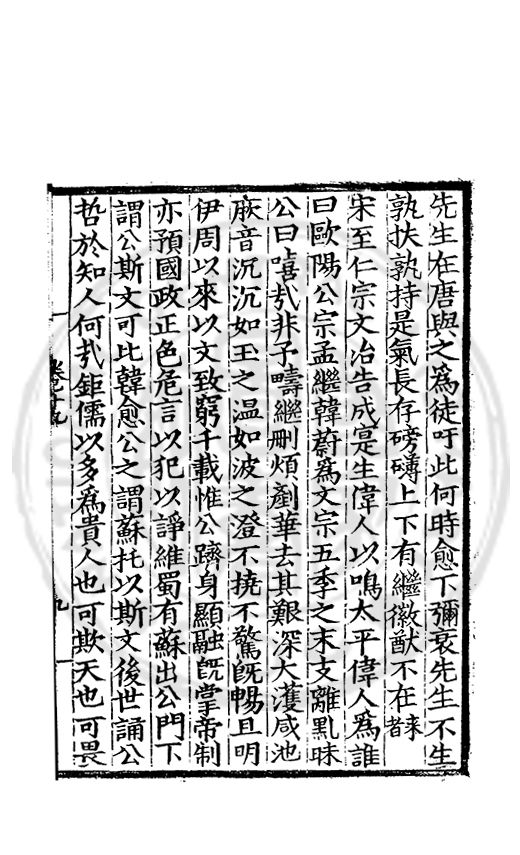 先生在唐與之爲徒吁此何時愈下彌衰先生不生
孰扶孰持是氣長存磅礴上下有繼徽猷不在來者
宋至仁宗文治告成寔生偉人以鳴太平偉人爲誰
曰歐陽公宗孟繼韓蔚爲文宗五季之末支離黒昧
公曰嘻㢤非予疇繼刪煩剷華去其艱深大濩咸池
厥音沉沉如玉之温如波之澄不撓不驚旣暢且明
伊周以來以文致窮千載惟公躋身顯融旣掌帝制
亦預國政正色危言以犯以諍維蜀有蘇出公門下
謂公斯文可比韓愈公之謂蘇托以斯文後世誦公
哲於知人何㢤鉅儒以多爲貴人也可欺天也可畏
卷之十九
九